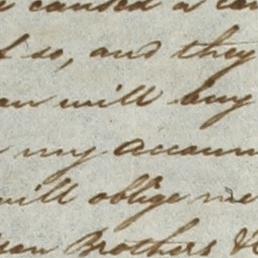 caused a
so, and they
will buy
my accoun
will oblige me
Brothers &